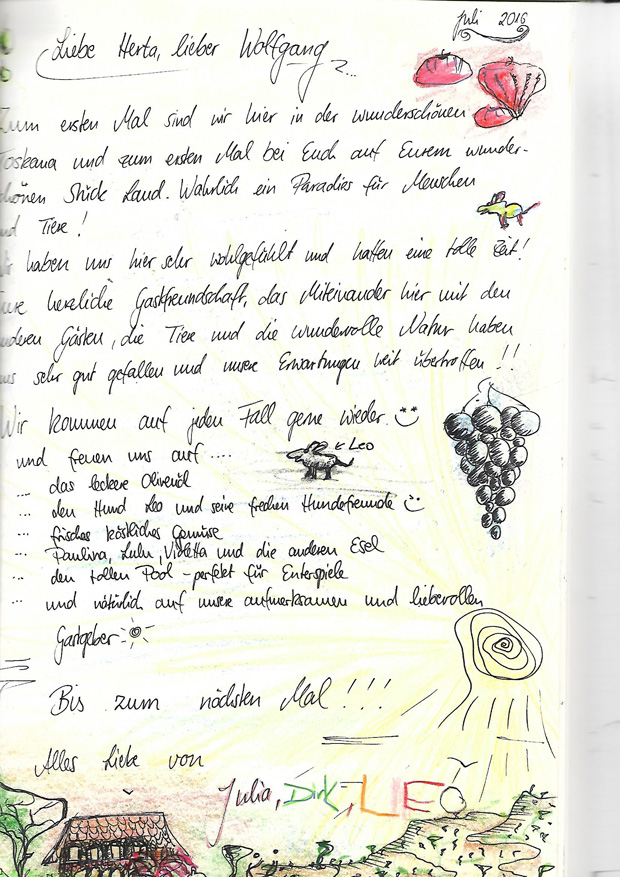 Juli 2016
Liebe Herta, lieber Wolfgang
Zum ersten Mal sind wir hier in der wunderschönen
Toskana und zum ersten Mal bei Euch auf Eurem wunder-
schönen Stück Land. Wahrlich ein Paradies für Menschen
und Tiere!
Wir haben uns hier sehr wohlgefühlt und hatten eine tolle Zeit!
Eure herzliche Gastfreundschaft, das Miteinander hier mit den
anderen Gästen, die Tiere und die wundervolle Natur haben
uns sehr gut gefallen und unsere Erwartungen weit übertroffen!!
Wir kommen auf jeden Fall gerne wieder
und freuen uns auf ....
Leo
... das leckere Olivenöl
... den Hund Leo und seine frechen Hundefreunde
... frisches köstliches Gemüse
... Paulina, Lulu, Violetta und die anderen Esel
... den tollen Pool - perfekt für Enterspiele
... und natürlich auf unsere aufmerksamen und liebevollen
Gastgeber
Bis zum nächsten Mal!!!
Alles Liebe von
Julia, Dirk,